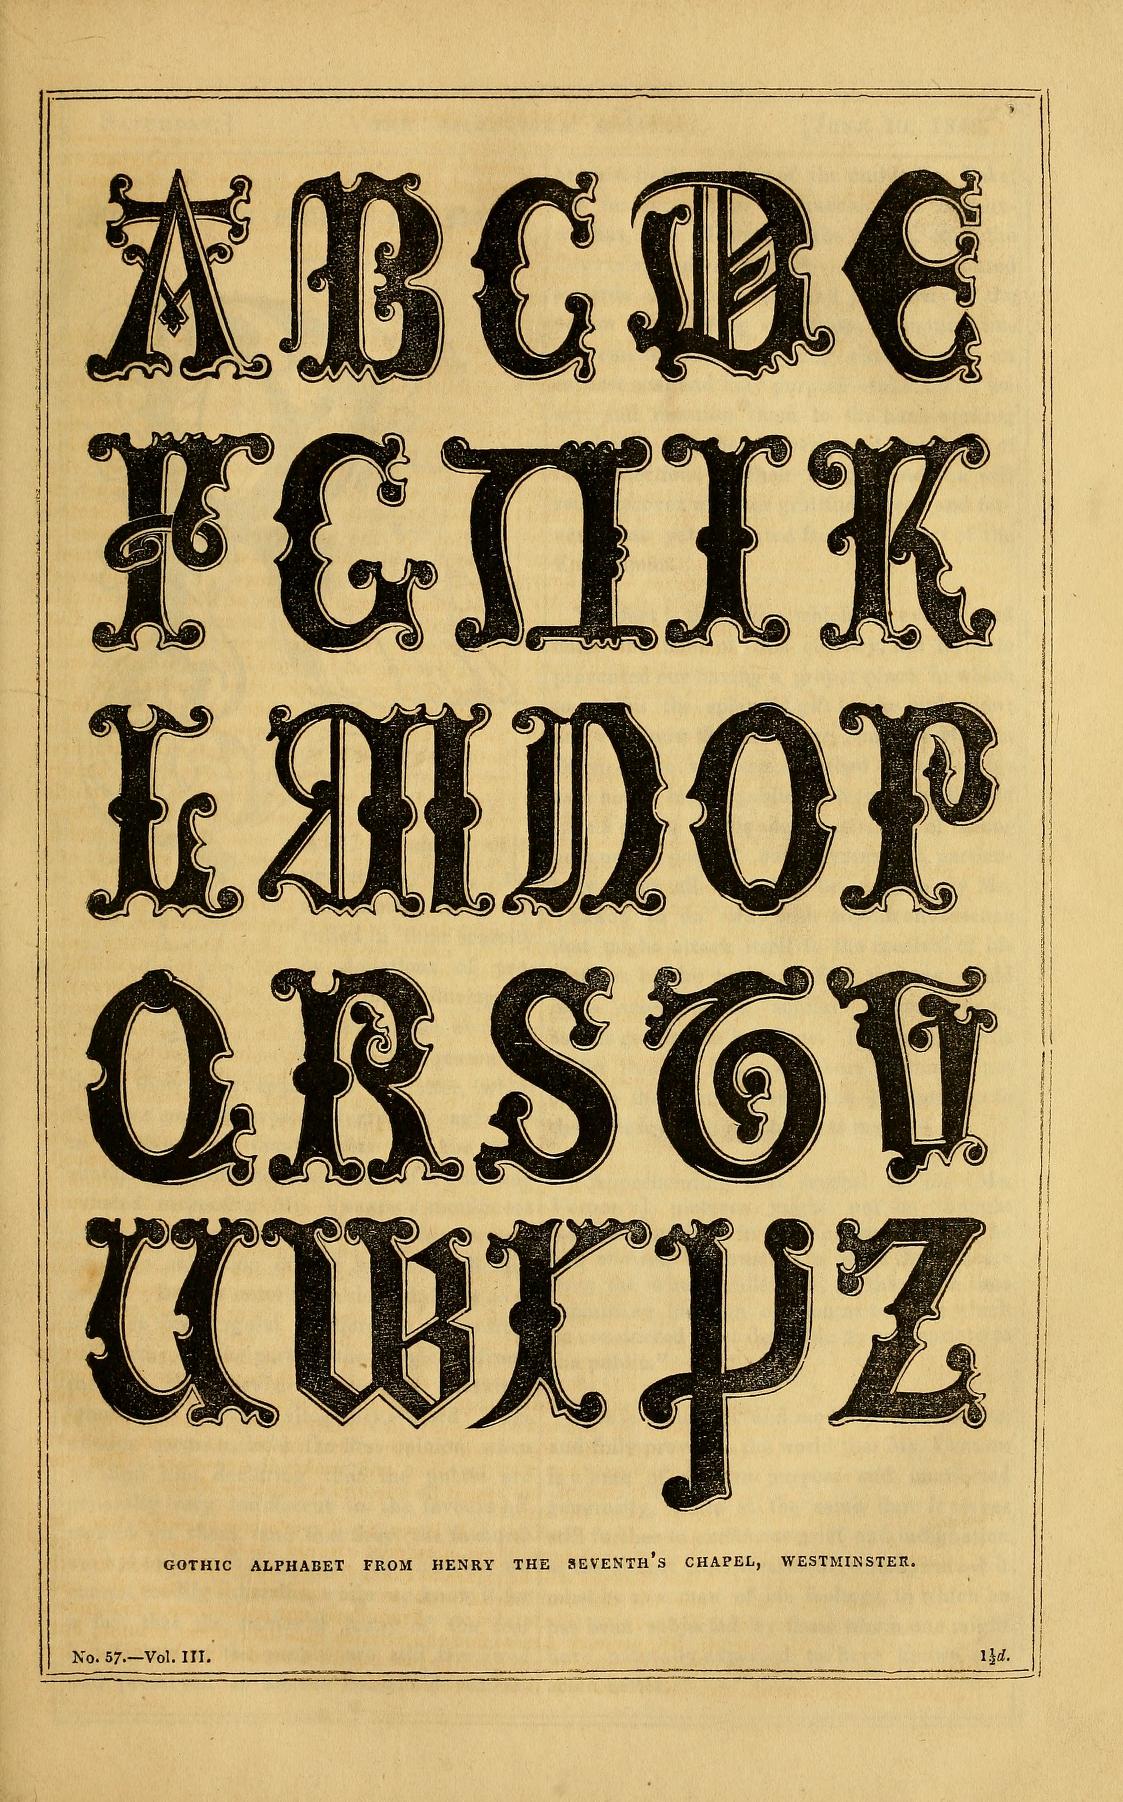 A B C D E
F G H I K
L M N O P
Q R S T V
U W X Y Z
GOTHIC ALPHABET FROM HENRY THE SEVENTH'S CHAPEL, WESTMINSTER.
No. 57.—Vol. III. 1½d.